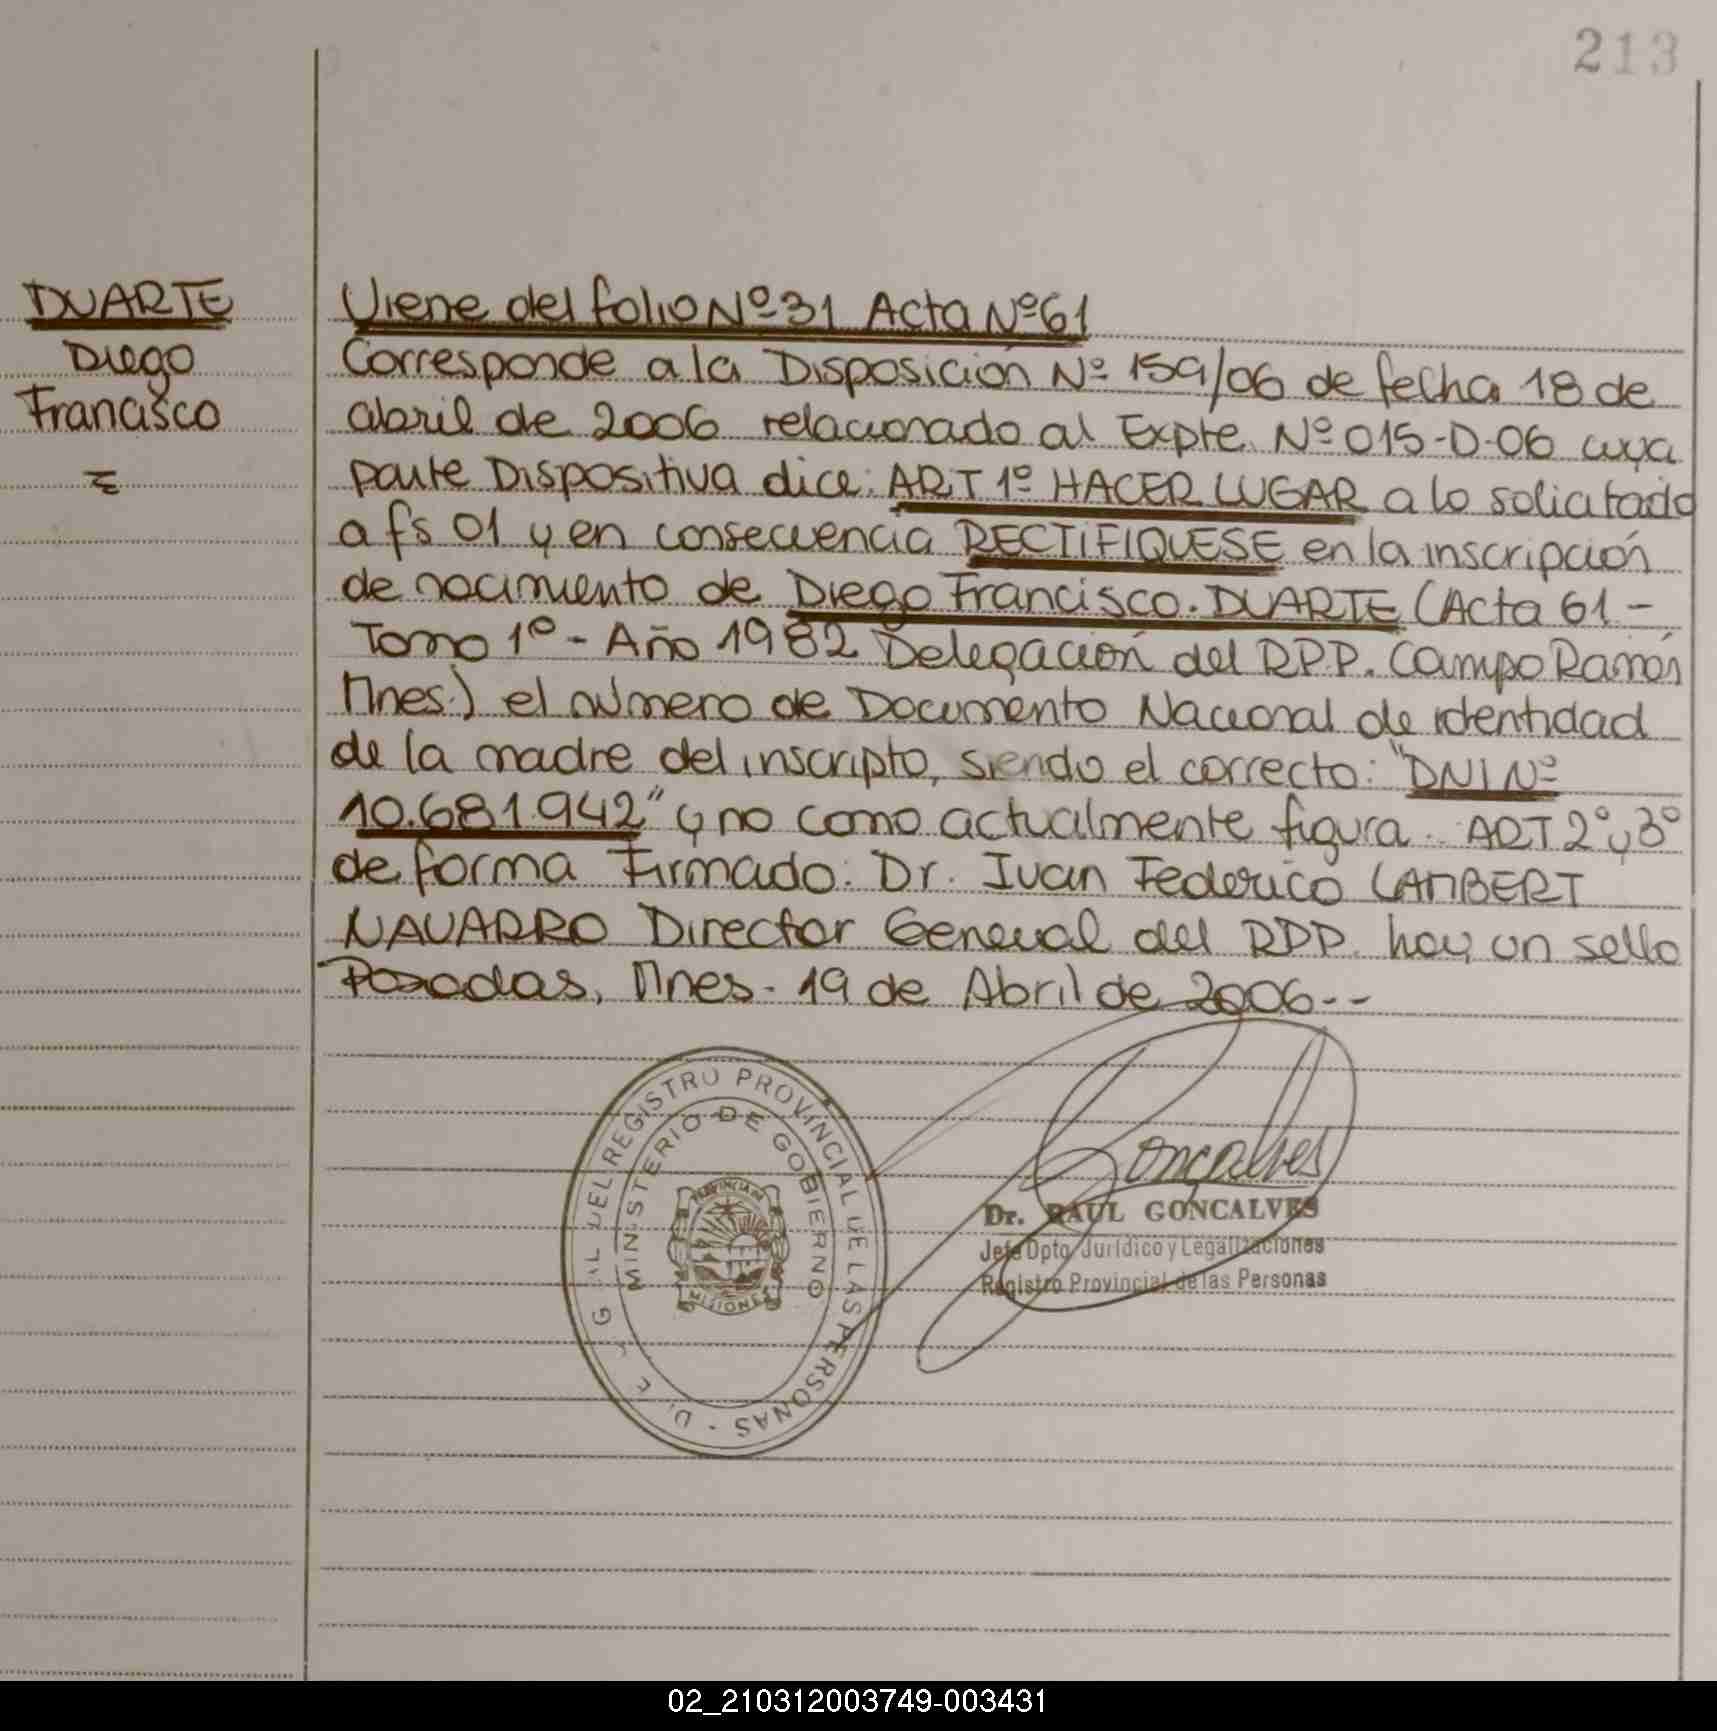 213
DUARTE
Diego
Francisco
Viene del folio Nº 31 Acta Nº 61
Corresponde a la Disposición Nº 159/06 de fecha 18 de
abril de 2006 relacionado al Expte. Nº 015-D-06 cuya
parte Dispositiva dice: ART 1º HACER LUGAR a lo solicitado
a fs 01 y en consecuencia RECTIFIQUESE en la inscripción
de nacimiento de Diego Francisco. DUARTE (Acta 61 -
Tomo 1º - Año 1982 Delegación del RPP. Campo Ramón
Mnes.) el número de Documento Nacional de identidad
de la madre del inscripto, siendo el correcto: "DNI Nº
10.681.942" y no como actualmente figura. ART 2º y 3º
de forma Firmado: Dr. Ivan Federico LAMBERT
NAVARRO Director General del RPP. hay un sello
Posadas, Mnes. 19 de Abril de 2006--
GRAL DEL REGISTRO PROVINCIAL DE LAS PERSONAS
MINISTERIO DE GOBIERNO
PROVINCIA DE
MISIONES
Goncalves
Dr. RAUL GONCALVES
Jefe Dpto Jurídico y Legalizaciones
Registro Provincial de las Personas
02_210312003749-003431